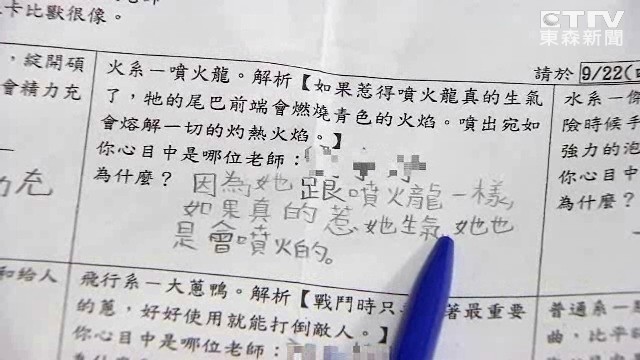 卡比獸很像。
CTTV
東森新聞
請於 9/22(
，綻開碩
會精力充
力充
火系－噴火龍。解析【如果惹得噴火龍真的生氣
了，牠的尾巴前端會燃燒青色的火焰。噴出宛如
會熔解一切的灼熱火焰。】
你心目中是哪位老師：
為什麼？因為她跟噴火龍一樣，
如果真的惹她生氣，她也
是會噴火的。
水系－傑
險時候手
強力的泡
你心目中
為什麼？
和給人
飛行系－大蔥鴨。解析【戰鬥時只
著最重要
的蔥，好好使用就能打倒敵人。】
你心目中是哪位老師：
普通系－
曲，比平